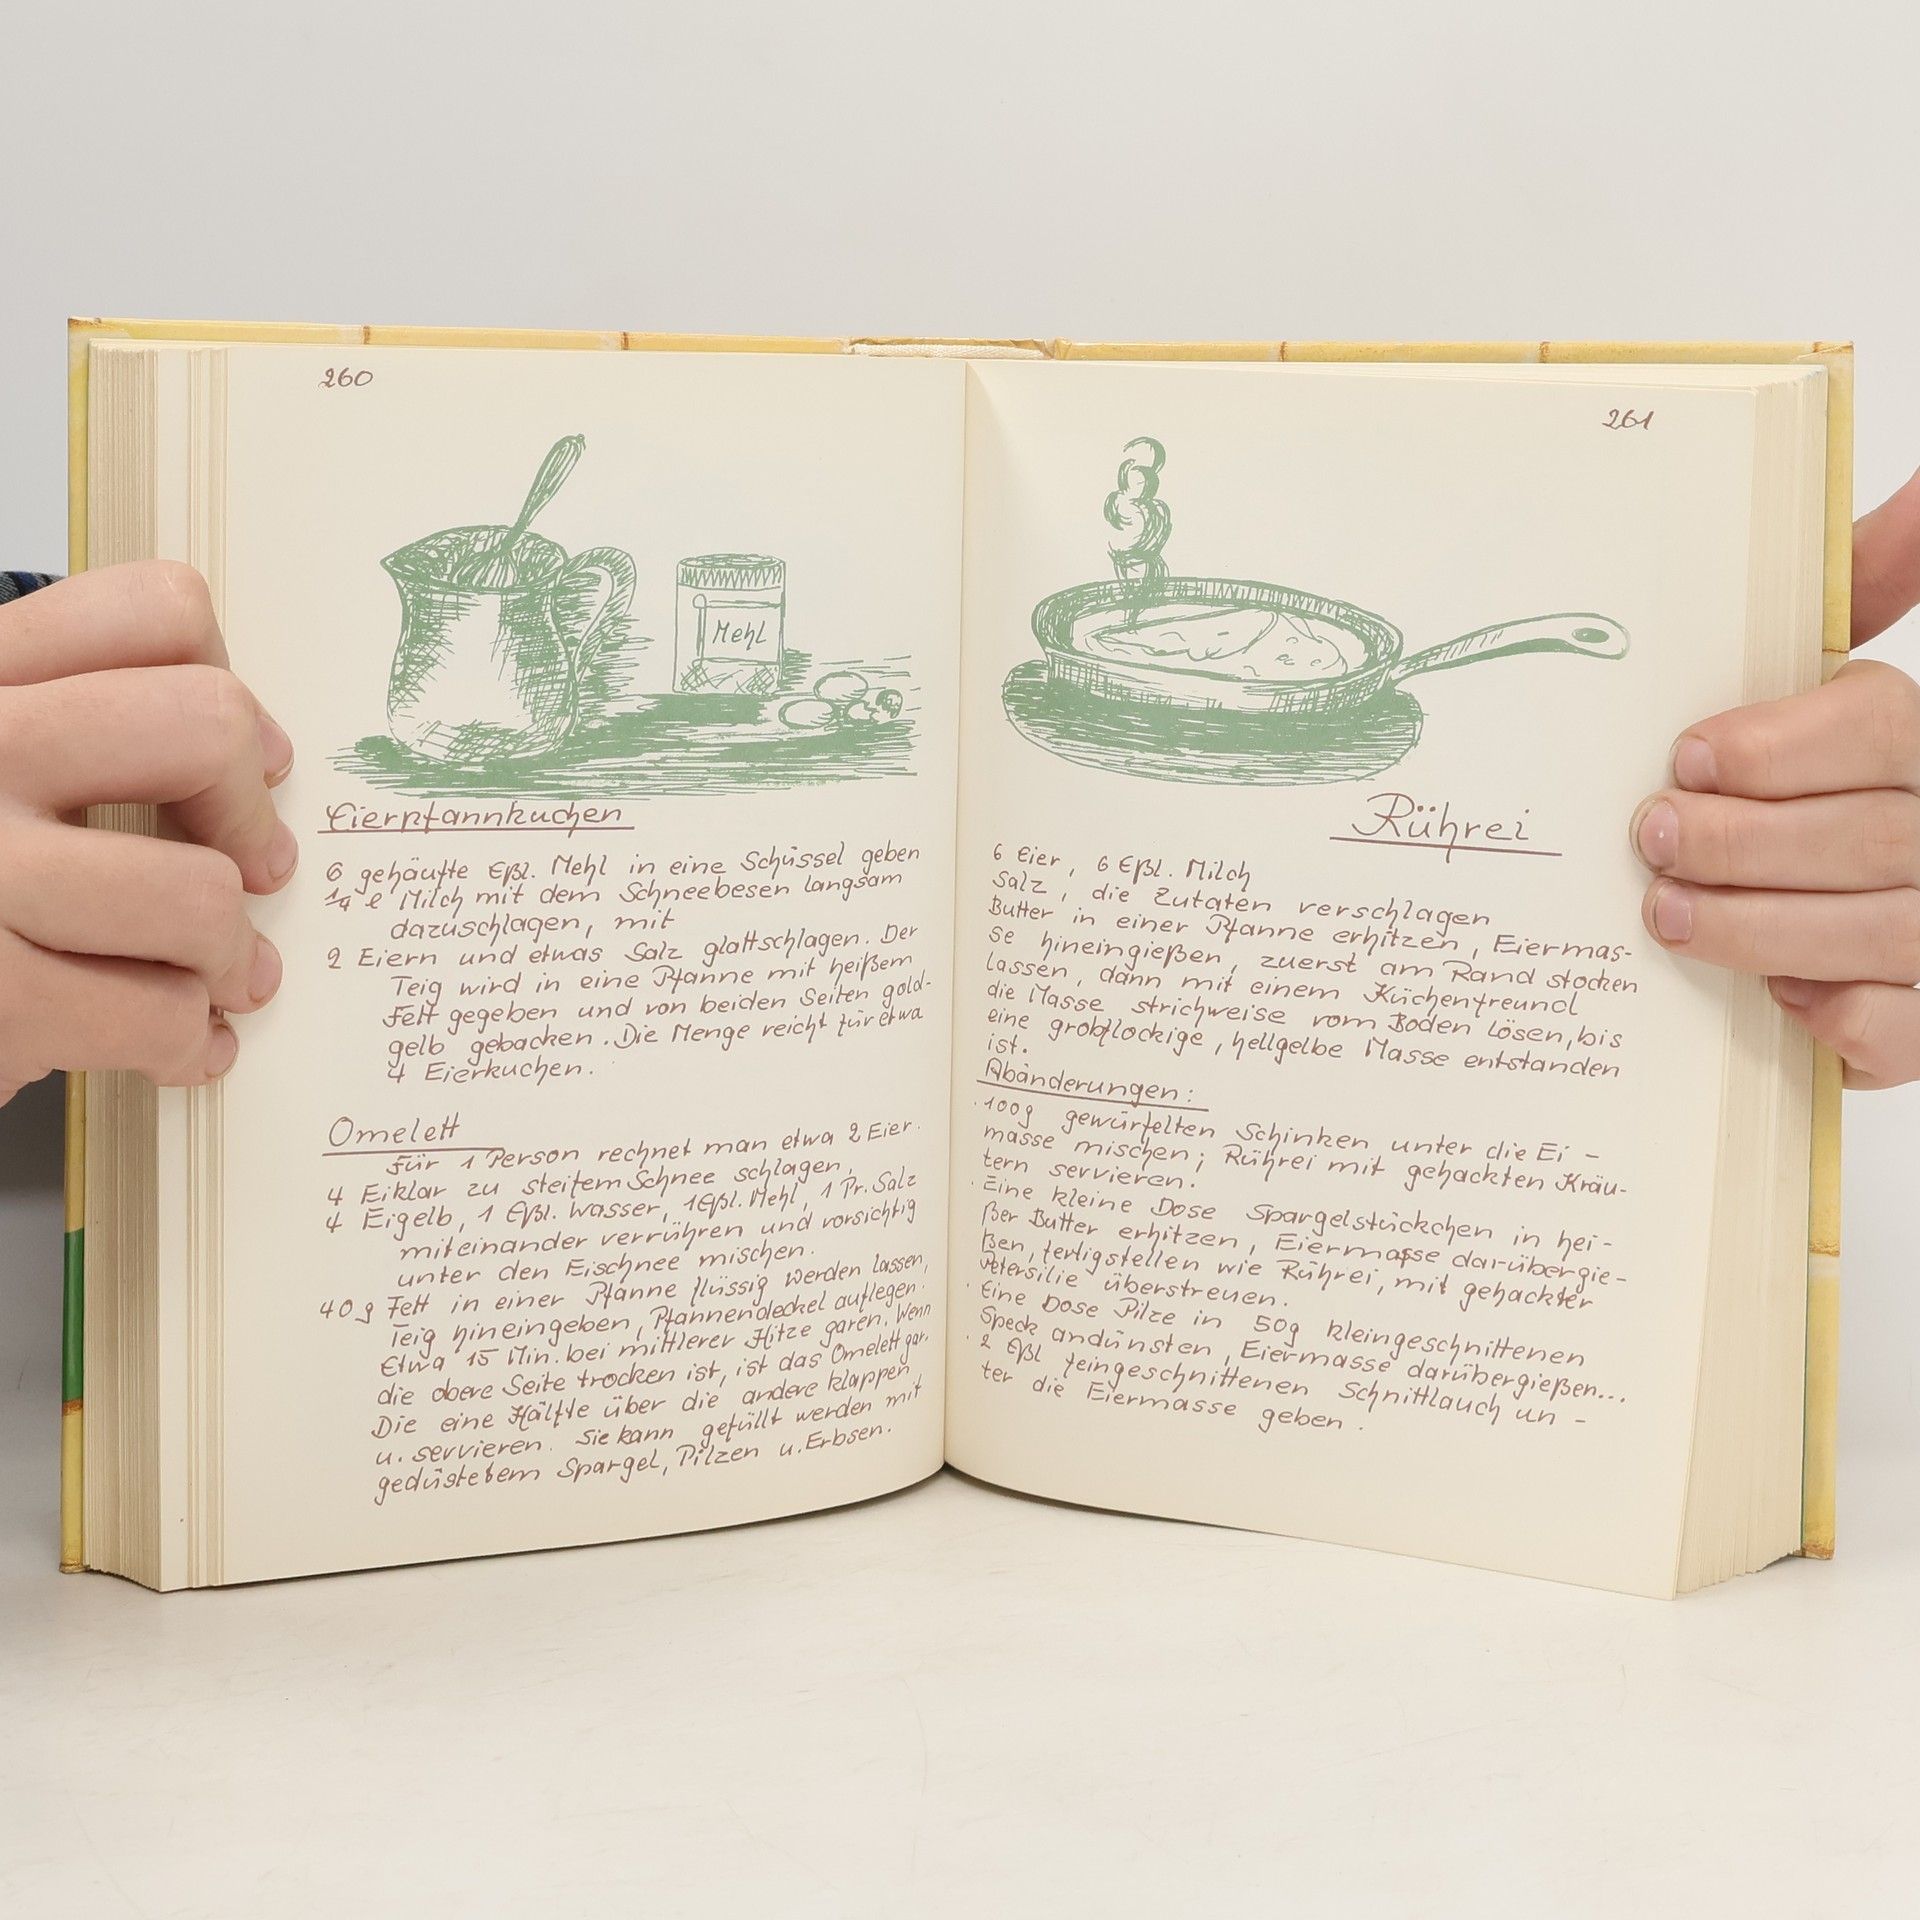 260
Mehl
Eierpfannkuchen
6 gehäufte Eßl. Mehl in eine Schüssel geben
1/4 l Milch mit dem Schneebesen langsam
dazuschlagen, mit
2 Eiern und etwas Salz glattschlagen. Der
Teig wird in eine Pfanne mit heißem
Fett gegeben und von beiden Seiten gold-
gelb gebacken. Die Menge reicht für etwa
4 Eierkuchen.
Omelett
Für 1 Person rechnet man etwa 2 Eier.
4 Eiklar zu steifem Schnee schlagen,
4 Eigelb, 1 Eßl. Wasser, 1 Eßl. Mehl, 1 Pr. Salz
miteinander verrühren und vorsichtig
unter den Eischnee mischen.
40 g Fett in einer Pfanne flüssig werden lassen,
Teig hineingeben, Pfannendeckel auflegen.
Etwa 15 Min. bei mittlerer Hitze garen. Wenn
die obere Seite trocken ist, ist das Omelett gar.
Die eine Hälfte über die andere klappen
u. servieren. Sie kann gefüllt werden mit
gedüstetem Spargel, Pilzen u. Erbsen.
261
Rührei
6 Eier, 6 Eßl. Milch
Salz, die Zutaten verschlagen
Butter in einer Pfanne erhitzen, Eiermas-
se hineingießen, zuerst am Rand stocken
lassen, dann mit einem Küchenfreund
die Masse strichweise vom Boden lösen, bis
eine grobflockige, hellgelbe Masse entstanden
ist.
Abänderungen:
. 100g gewürfelten Schinken unter die Ei -
masse mischen; Rührei mit gehackten Kräu-
tern servieren.
. Eine kleine Dose Spargelstückchen in hei-
ßer Butter erhitzen, Eiermasse darübergie-
ßen, fertigstellen wie Rührei, mit gehackter
Petersilie überstreuen.
. Eine Dose Pilze in 50g kleingeschnittenen
Speck andünsten, Eiermasse darübergießen...
. 2 Eßl feingeschnittenen Schnittlauch un -
ter die Eiermasse geben.